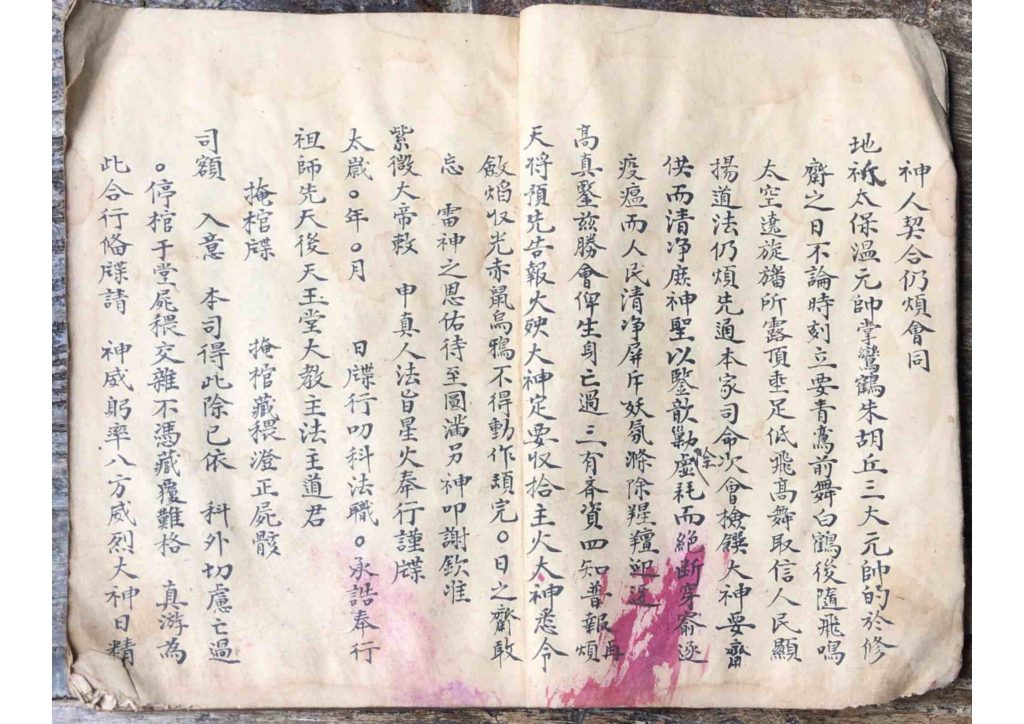 神人契合仍煩會同
地祇太保溫元帥掌鸞鶴朱胡丘三大元帥的於修
齋之日不論時刻立要青鸞前舞白鶴後隨飛鳴
太空遠旋旛所露頂垂足低飛高舞取信人民顯
揚道法仍煩先通本家司命次會檢饌大神要齋
供而清净庶神聖以鑒歆勦除虛耗而絕断穿窬逐
疫瘟而人民清净屏斥妖氛滌除羥羶迎迓
高真鑒兹勝會俾生身亡過三有斉資四知普報再煩
天将預先告報火殃大神定要収拾主火大神悉令
斂焰収光赤鼠烏鴉不得動作頑完〇日之齋敢
忘 雷神之恩佑待至圓滿另神叩謝欽惟
紫微大帝敕 申真人法旨星火奉行謹牒
太歲〇年〇月 日牒行叨科法職〇承誥奉行
祖師先天後天玉堂大教主法主道君
掩棺牒 掩棺藏穢澄正屍骸
司額 入意 本司得此除已依 科外切慮亡過
〇停棺于堂屍穢交雜不馮藏覆難格 真游為
此合行俻牒請 神威躬率八方威烈大神日精